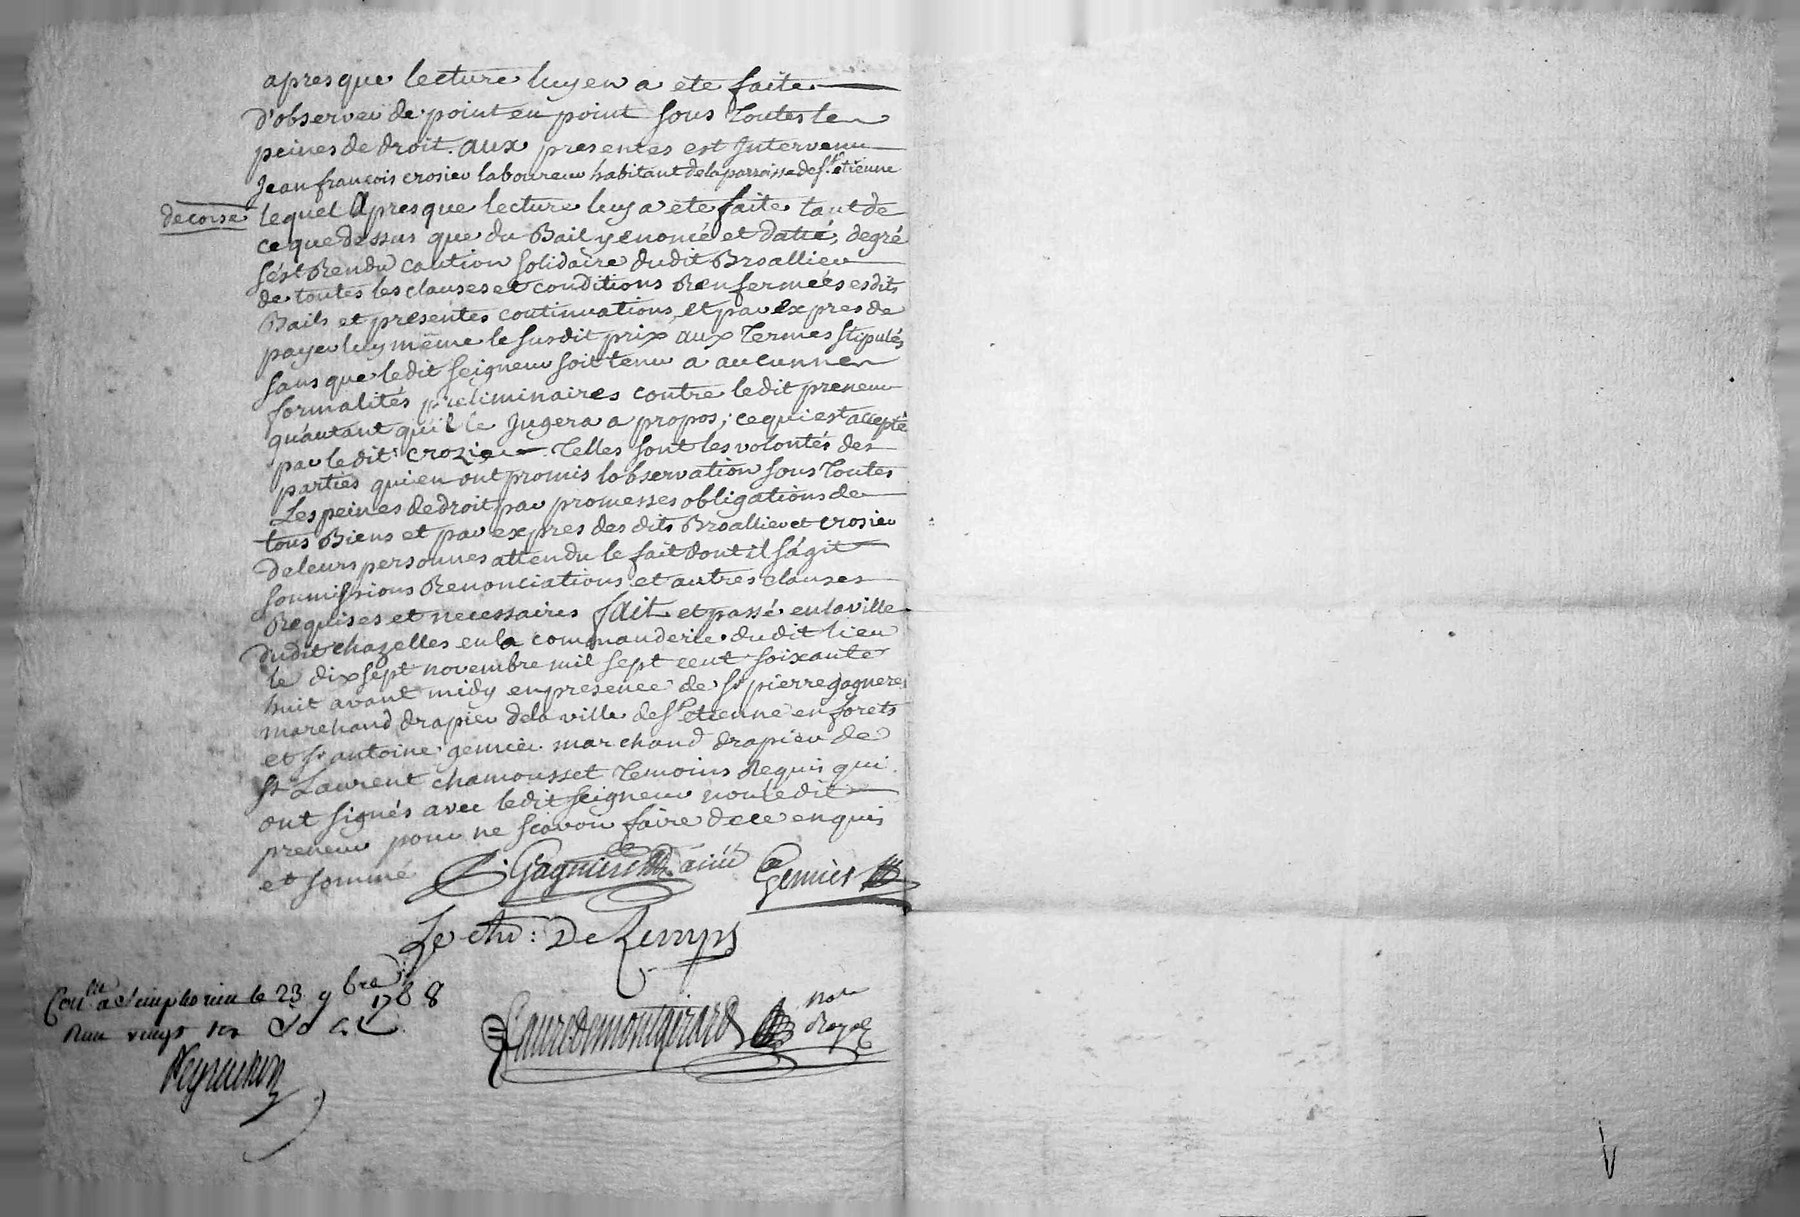 apres que lecture luy en a eté faite
d'observer de point en point sous toutes les
peines de droit. aux presentes est Intervenu
Jean françois crosier laboureur habitant de la parroisse de st etienne
de coise lequel apres que lecture luy a eté faite tant de
ce que dessus que du Bail y enoncé et datté, de gré
s'est Rendu caution solidaire dudit Broallier
de toutes les clauses et conditions Renfermées esdits
Bails et presentes continuations, et par expres de
payer luy même le susdit prix aux Termes stipulés
sans que ledit seigneur soit tenu a aucunnes
formalités preliminaires contre ledit preneur
qu'autant qu'il le Jugera a propos; ce qui est accepté
par ledit crozier Telles sont les volontés des
parties qui en ont promis lobservation sous Toutes
Les peines de droit par promesses obligations de
tous Biens et par expres des dits Broallier et crosier
de leurs personnes attendu le fait dont il s'agit
soumissions Renonciations et autres clauses
Requises et necessaires fait et passé en la ville
dudit chazelles en la commanderie dudit lieu
le dix sept novembre mil sept cent soixante
huit avant midy en presence de sr pierre gagnere
marchand drapier de la ville de st etienne en forets
et sr antoine genier marchand drapier de
st Laurent chamousset Temoins Requis qui
ont signés avec ledit seigneur non ledit
preneur pour ne scavoir faire de ce enquis
et sommé
Gagniere ainé Genier
Le chr: De Lemps
Con.lé a s.t simphorien le 23 9bre 1768
Reçu vingt six
Faure de montgirard not. Royal